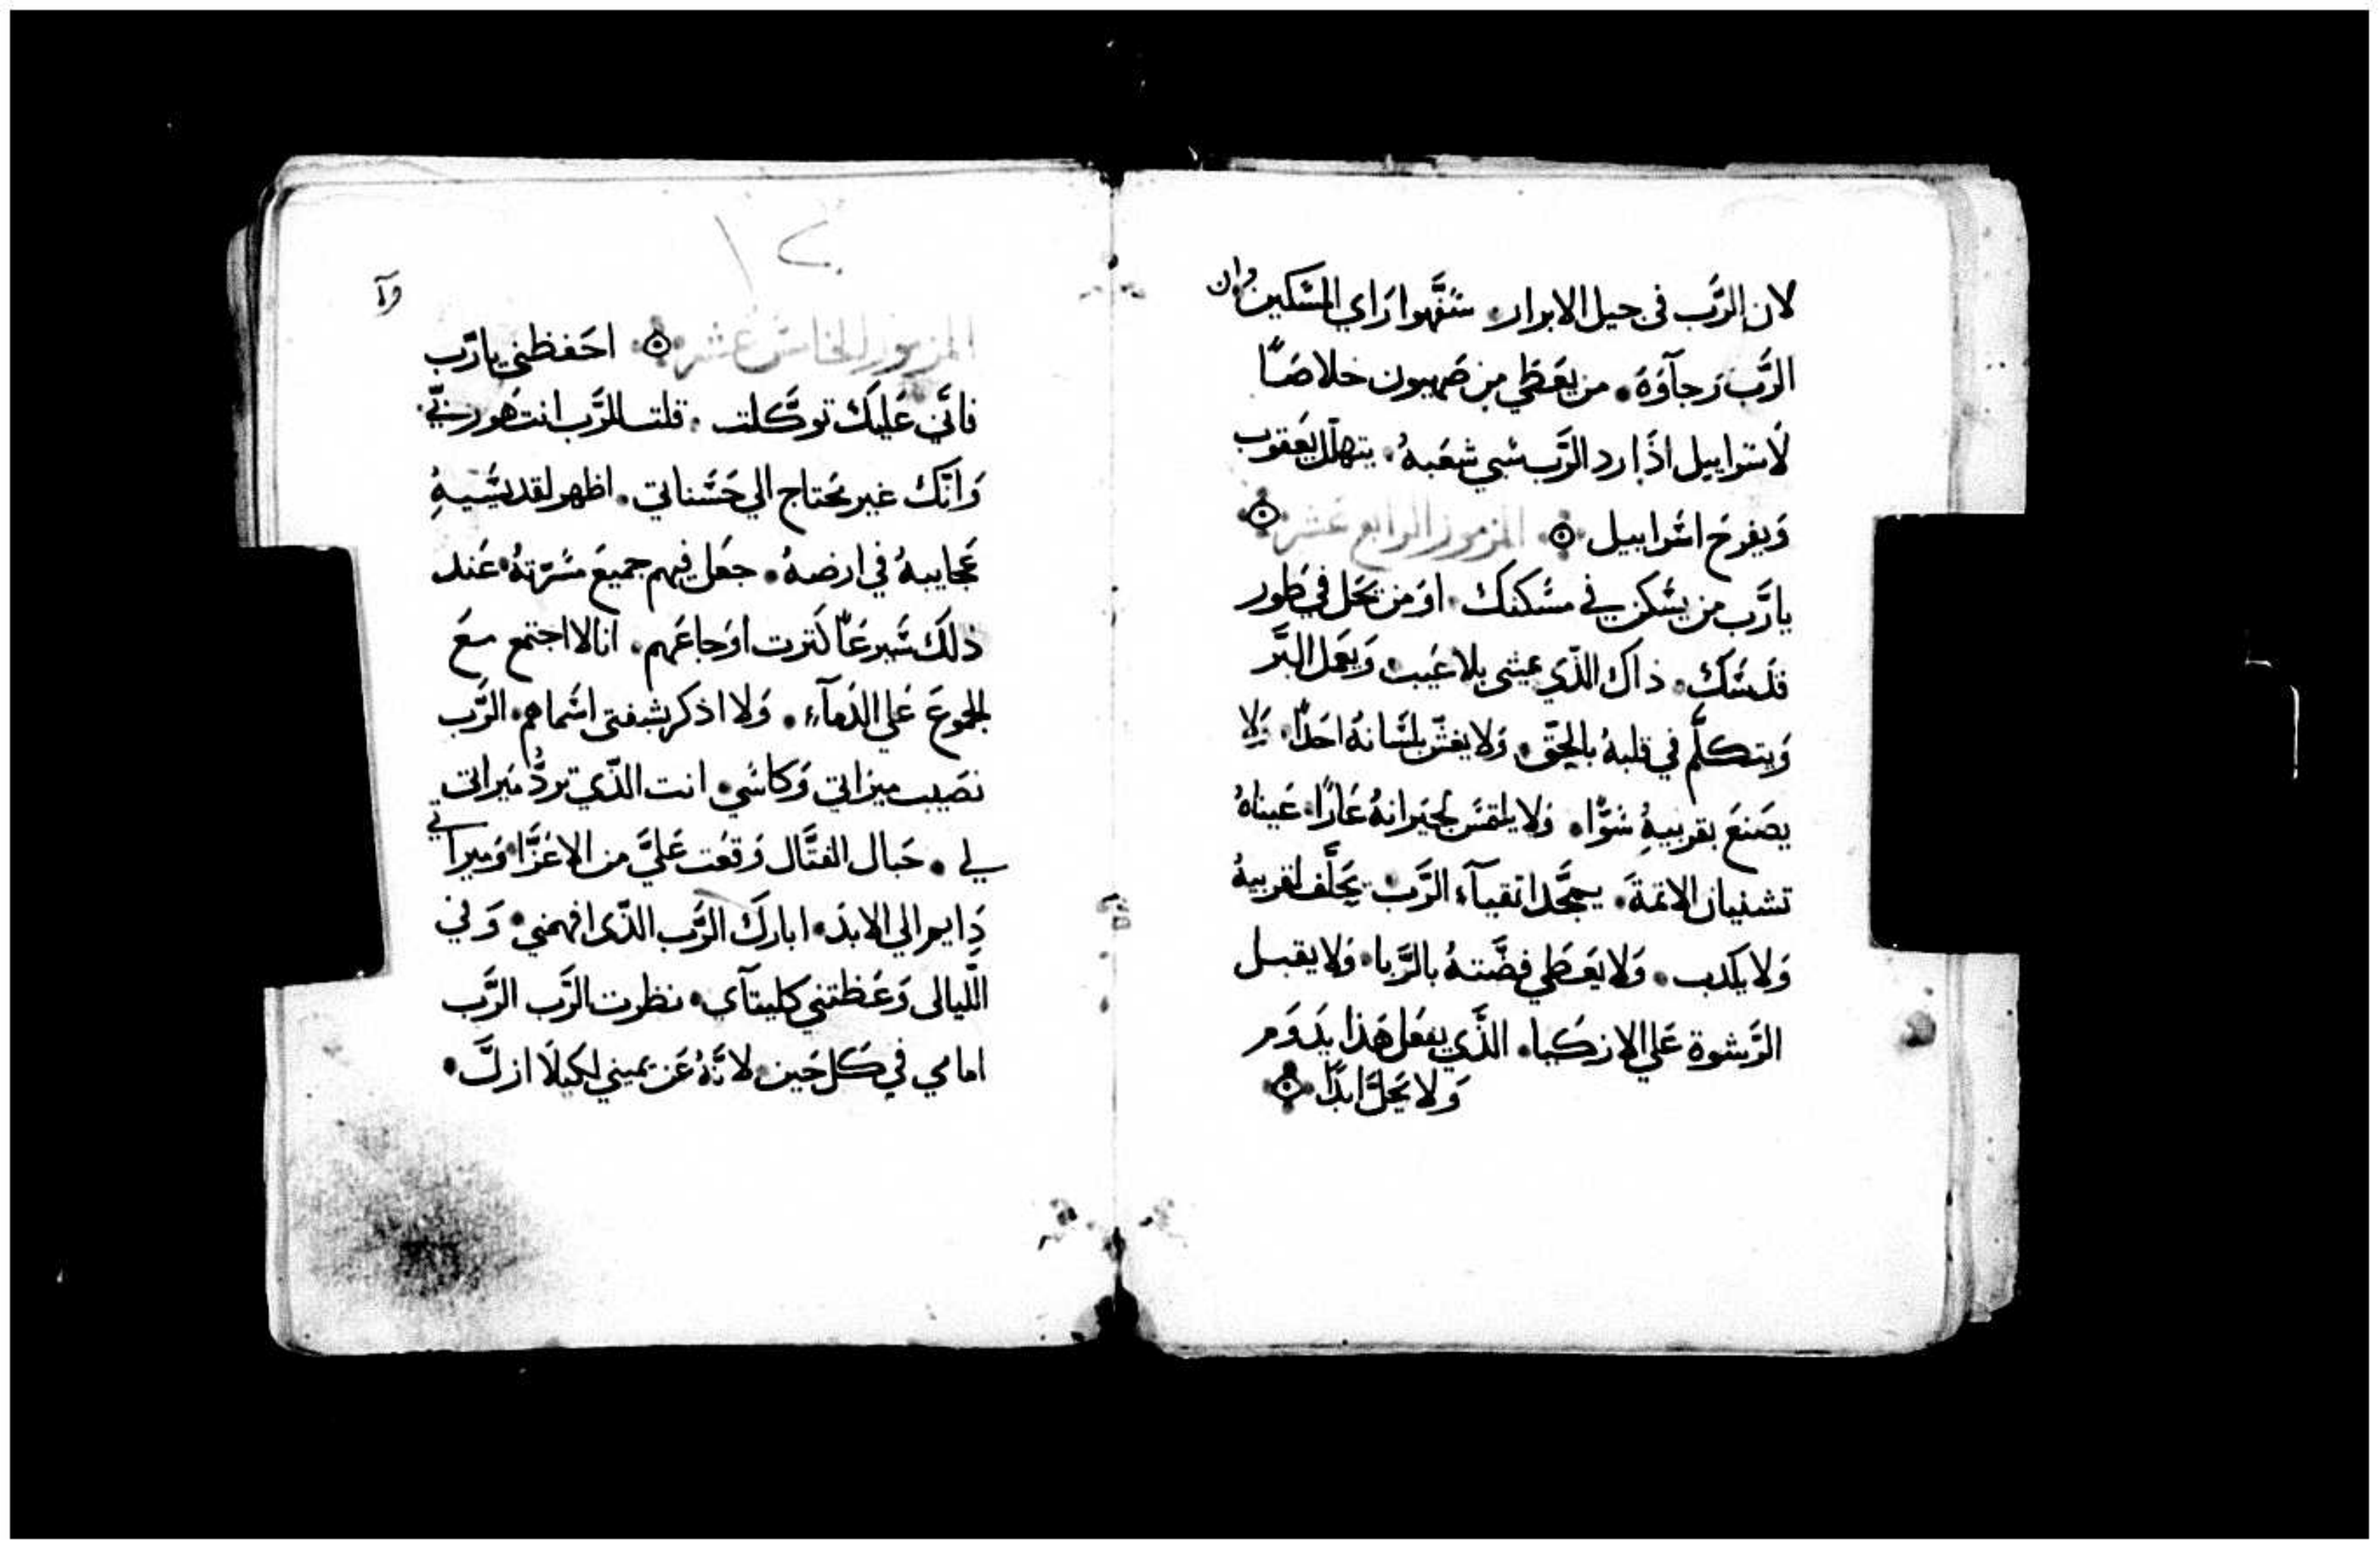 لان الرَّب في جيل الابرار. سَفَّهوا رَاي المسَكين وان
الرَّب رَجآؤهَ. من يعَطي من صَهيون خلاصًا
لاسَراييل اذَا رد الرَّب سَبي شعَبهُ. يتهلّل يَعقوب
وَيفرح اسَراييل المزمور الرابع عَشر
يارَّب من يسَكن في مسَكنك. اوَ من يَحَل في طَور
قدسَك. ذاك الذّي يمشي بلا عَيب. وَيعَمل البَّر
وَيتكلَّم في قلبهُ بالحَقّ. وَلا يغشّ بلسَانهُ احَدًا. وَلا
يصَنعَ بقريبهُ سَوًّا. وَلا يلتمسَ لجيَرانهُ عَارًا. عَيناهُ
تشنيان الاثمةَ. يمجَّد اتقيآء الرَّب. يَحَلَّف لقريبهُ
وَلا يكدب. وَلا يعَطي فضَّتهُ بالرَّبا. وَلا يقبل
الرَّشوة عَلي الازكَيا. الذَّي يفعَل هَذا يدَوَم
وَلا يَحَلَّ ابدًا
١٢
وآ
المزمور الخامسَ عَشر احَفظني يارَّب
فانّي عَليكَ توكَّلت. قلت للرَّب انت هَو ربّي.
وَانَّكَ غير مُحتاج الي حَسَناتي. اظهر لقديسَّيهُ
عَجاييبهُ في ارضهُ. جعَل فيهم جميعَ مسَرّتهُ عَند
ذلكَ سَّبرعَاً كَثرت اوَجاعَهم. انا لا اجتمع معَ
الجموعَ عَلي الدَمآء. وَلا اذكر بشفتي اسَماهم. الرَّب
نصَيب ميراثي وَكاسَي. انت الذّي تردَّ ميَراثي
لي. حَبال القتَّال وَقعَت عَليَّ من الاعَزَّا. وَميراثي
دَايم الي الابدَ. ابارك الرَّب الذّي افهمني. وَفي
اللَّيالي وَعَظتني كليتآي. نظرت الرَّب الرَّب
امامي في كَل حَين. لانَّهُ عَن يميني لكيلا ازلَّ.